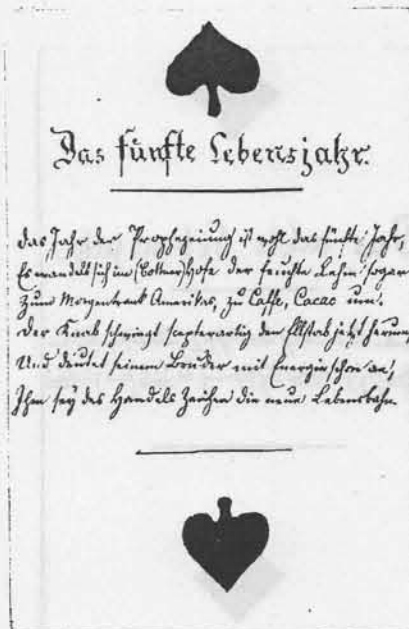 Das fünfte Lebensjahr.
Das Jahr der Prophezeiung ist wohl das fünfte Jahr,
Es wandelt sich im (Bottmer) Hofe der feuchte Lehm sogar
Zum Morgentrank Amerikas, zu Caffe, Cacao um.
Der Knab schwingt scepterartig den Ellstab jetzt herum,
Und deutet seinem Bruder mit Energie schon an,
Ihm sey des Handels Zeichen die neue Lebensbahn